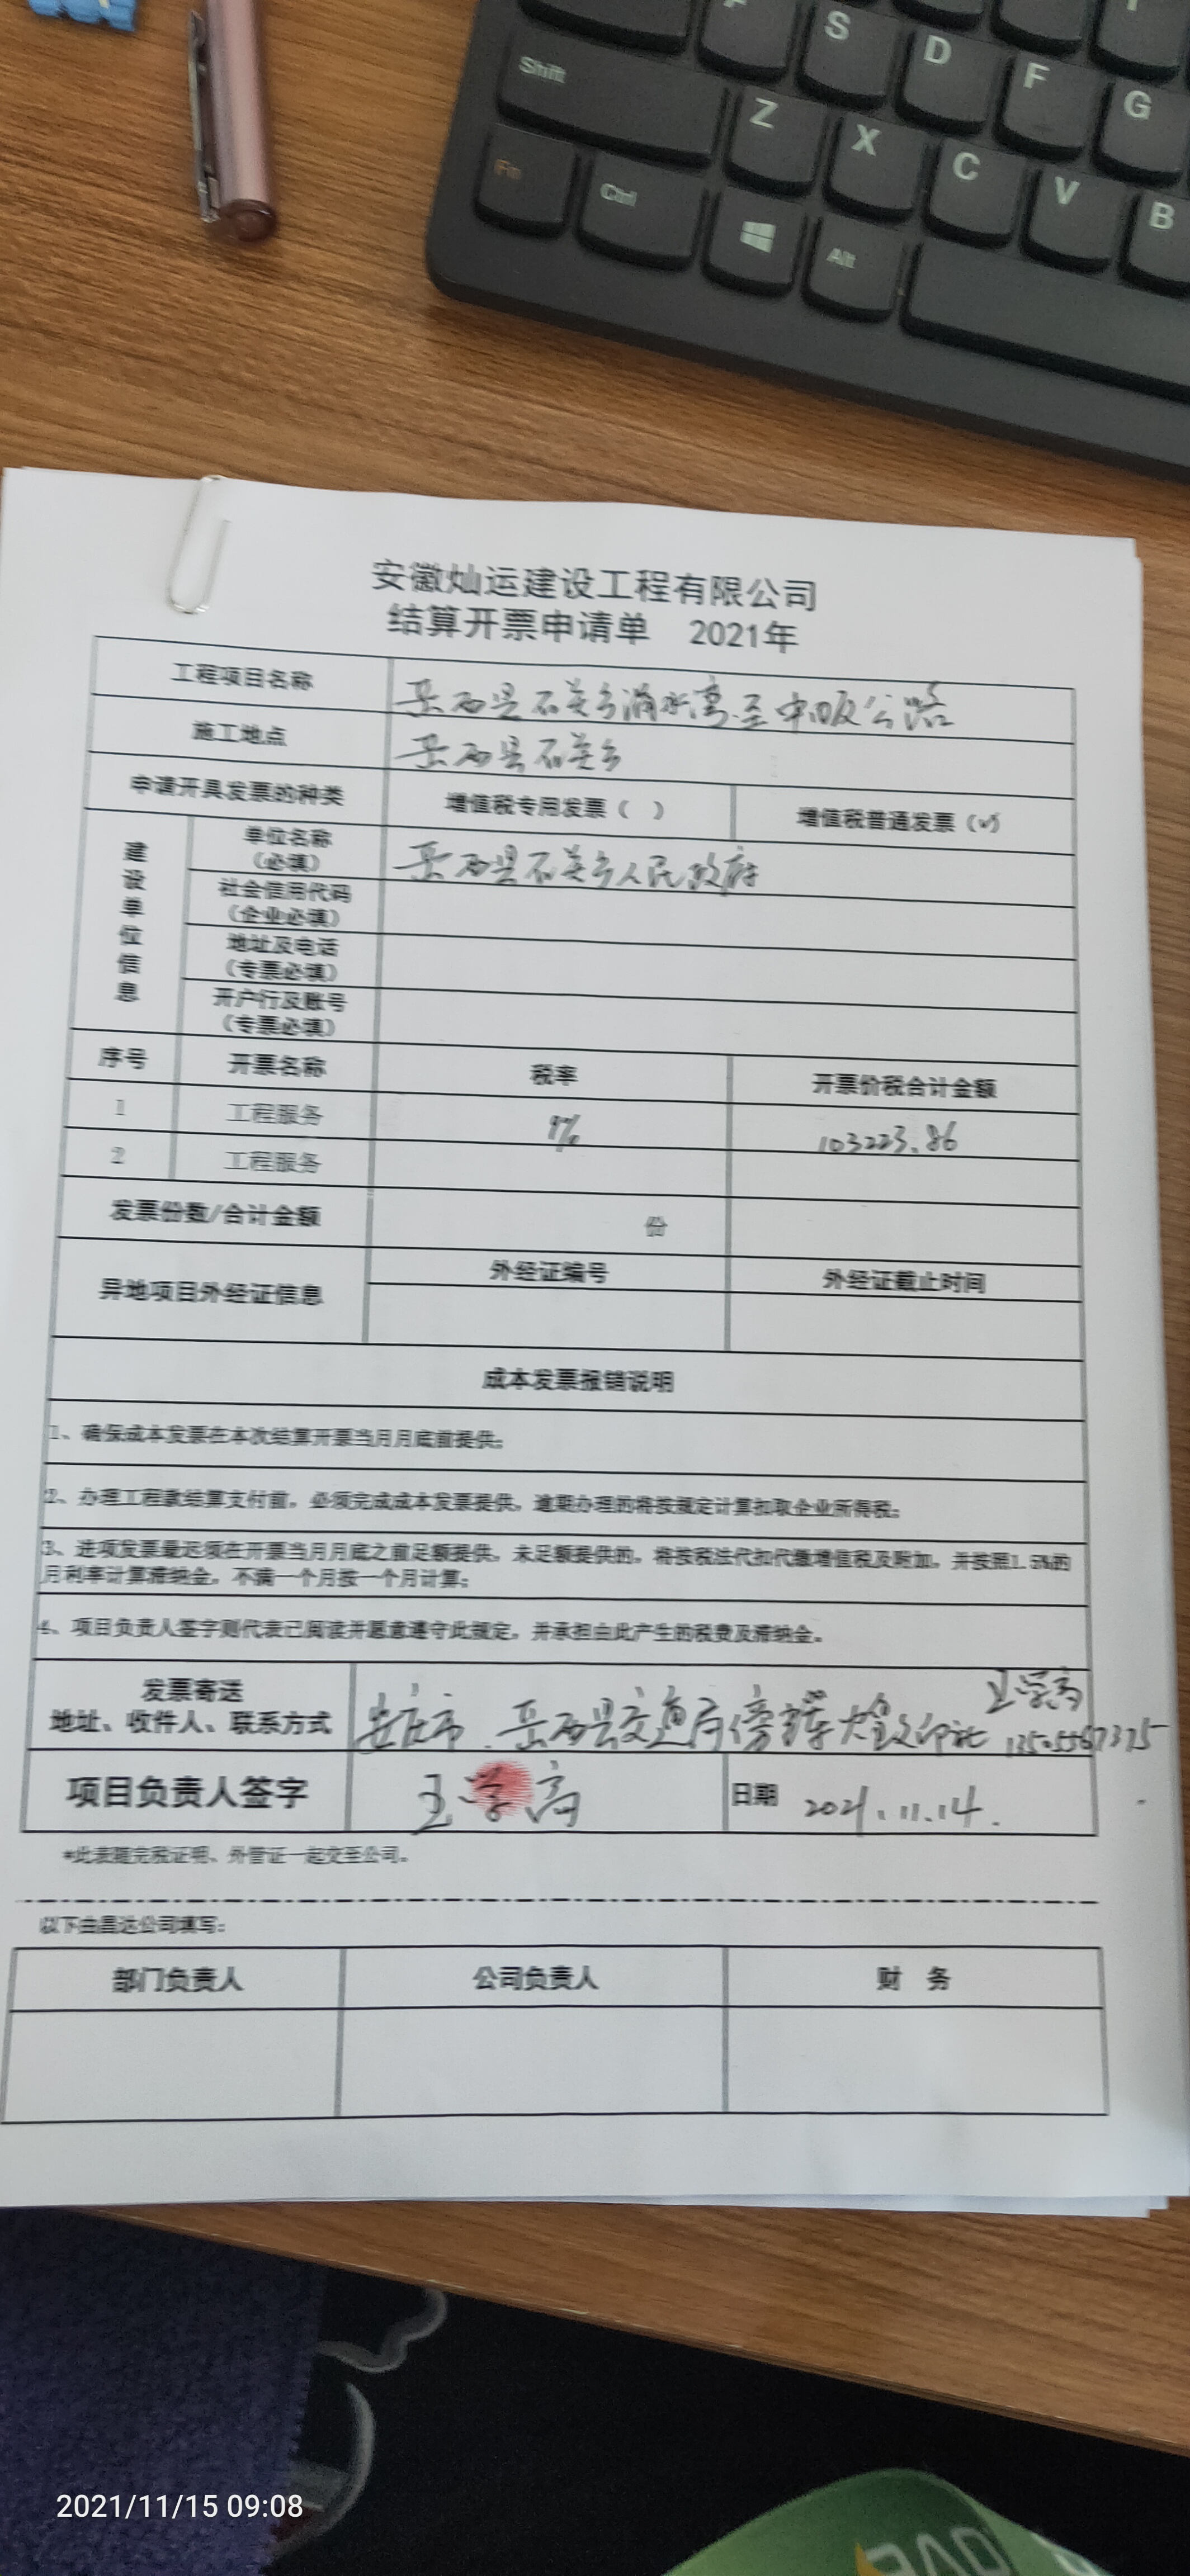 S
D
F
G
Shift
Z
X
C
V
B
Fn
Ctrl
Alt
安徽灿运建设工程有限公司
结算开票申请单 2021年
工程项目名称 岳西县石关乡滴水湾至中畈公路
施工地点 岳西县石关乡
申请开具发票的种类 增值税专用发票（ ） 增值税普通发票（√）
建设单位信息
单位名称（必填） 岳西县石关乡人民政府
社会信用代码（企业必填）
地址及电话（专票必填）
开户行及账号（专票必填）
序号 开票名称 税率 开票价税合计金额
1 工程服务 9% 103223.86
2 工程服务
发票份数/合计金额 份
异地项目外经证信息 外经证编号 外经证截止时间
成本发票报销说明
1、确保成本发票在本次结算开票当月月底前提供；
2、办理工程款结算支付前，必须完成成本发票提供，逾期办理的将按规定计算扣取企业所得税；
3、进项发票最迟须在开票当月月底之前足额提供，未足额提供的，将按税法代扣代缴增值税及附加，并按照1.5%的
月利率计算滞纳金，不满一个月按一个月计算；
4、项目负责人签字则代表已阅读并愿意遵守此规定，并承担由此产生的税费及滞纳金。
发票寄送
地址、收件人、联系方式 安庆市 岳西县交通局傍 王学高
项目负责人签字 王学高 日期 2021.11.14.
*此表随完税证明、外管证一起交至公司。
以下由昌达公司填写：
部门负责人 公司负责人 财 务
2021/11/15 09:08